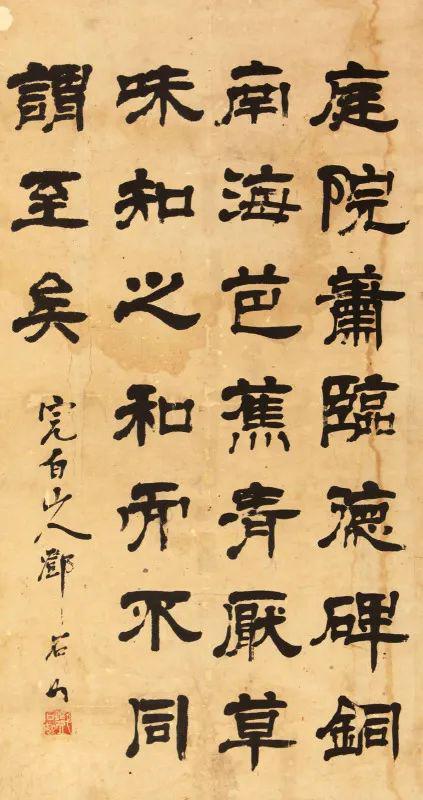 庭院蕭臨德碑銅
南海芭蕉青厭草
味知之和而不同
謂至矣
完白山人鄧石如